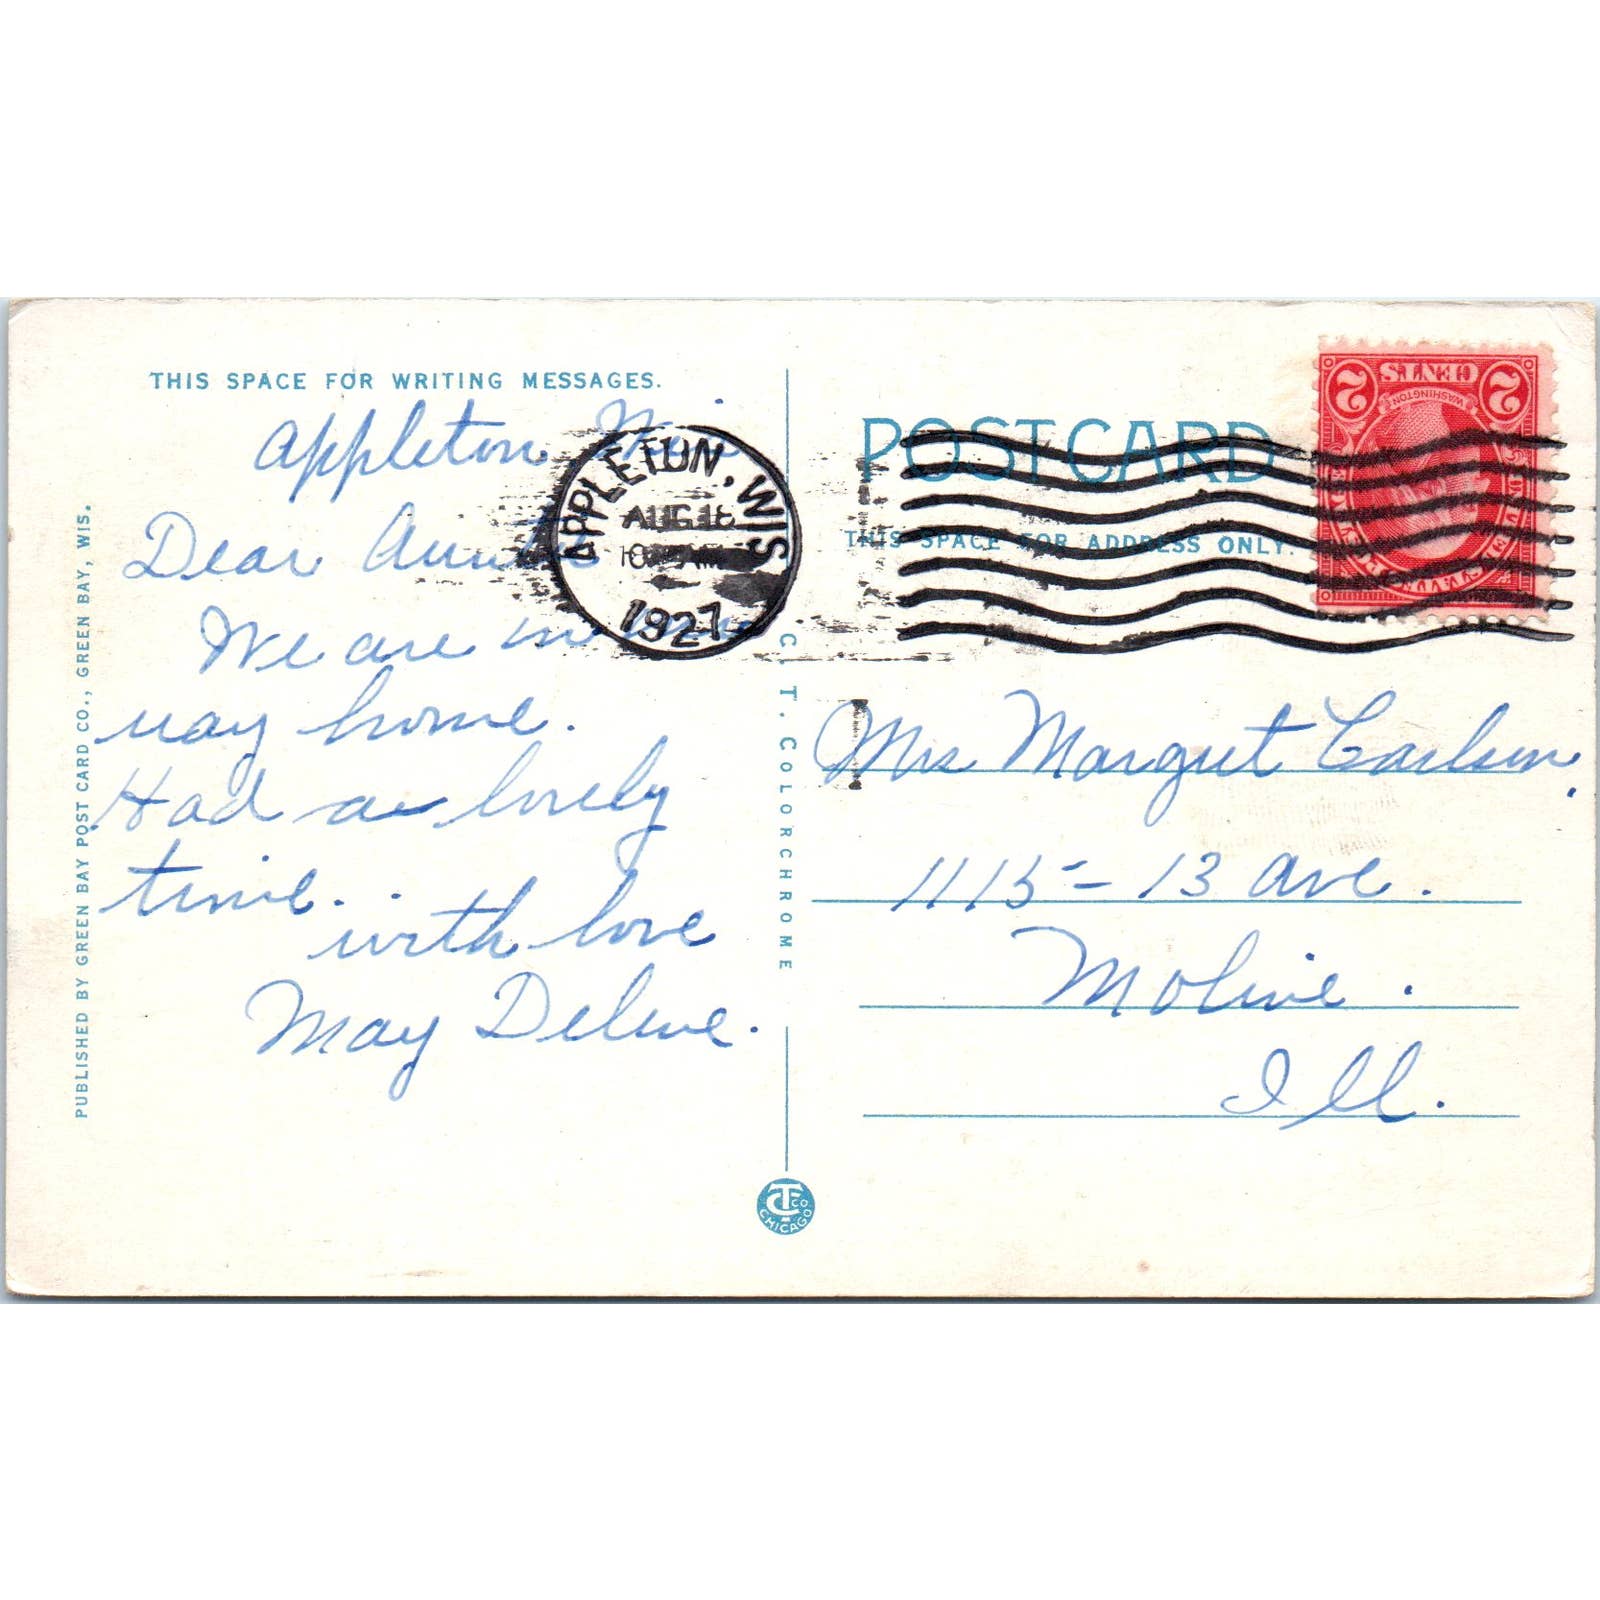 THIS SPACE FOR WRITING MESSAGES.
Appleton Wis
Dear Aunt
We are on our
way home.
Had a lovely
time.
with love
May Deline.
PUBLISHED BY GREEN BAY POST CARD CO., GREEN BAY, WIS.
APPLETON, WIS.
AUG 18
10 AM
1927
C. T. COLORCHROME
CT CO
CHICAGO
POST CARD
THIS SPACE FOR ADDRESS ONLY.
2 CENTS 2
WASHINGTON
Mrs Margret Carlson.
1115 - 13 Ave.
Moline.
Ill.